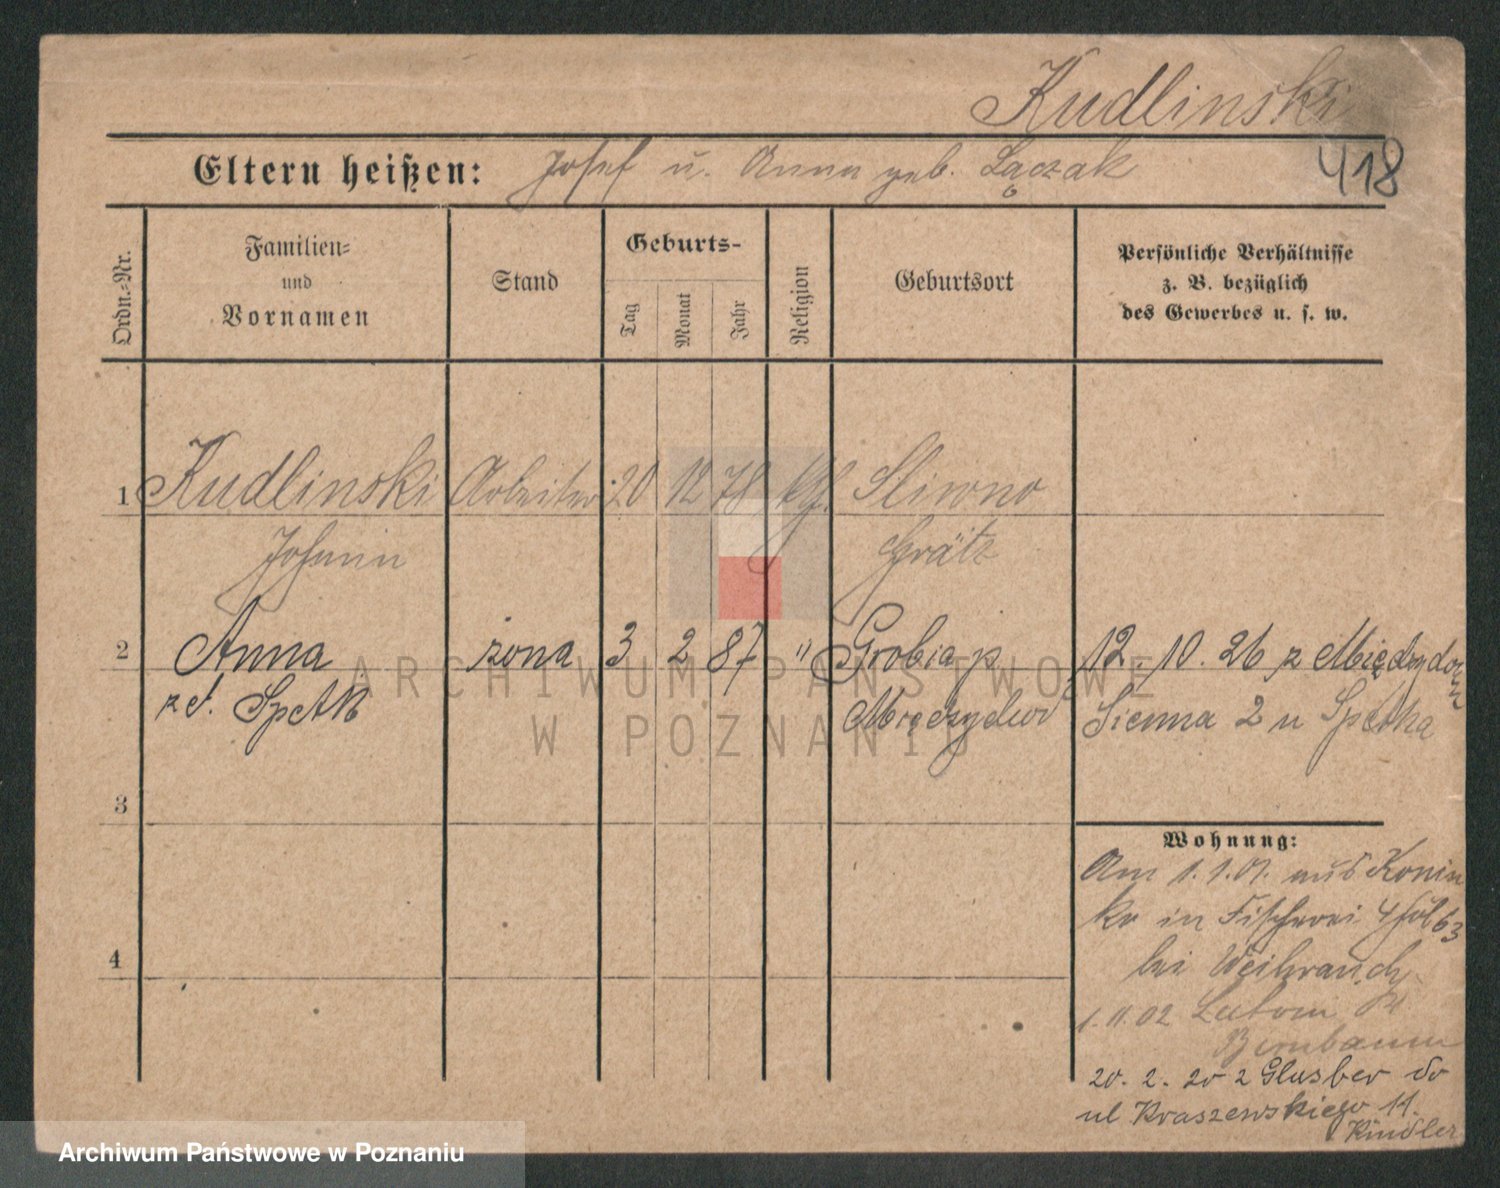 Kudlinski
418
Eltern heißen: Josef u. Anna geb. Łączak
Ordn.-Nr.
Familien-
und
Vornamen
Stand
Geburts-
Tag
Monat
Jahr
Religion
Geburtsort
Persönliche Verhältnisse
z. B. bezüglich
des Gewerbes u. s. w.
1 Kudlinski Arbeiter 20 12 78 kgl. Sliwno
Johann Grätz
2 Anna żona 3 2 87 " Grobia p 12. 10. 26 z Międzychodu
zd. Spetk Międzychod Sienna 2 u Spetka
3
4
Wohnung:
Am 1. 1. 01. aus Konin
ko in Fischerei 4
bei Weihrauch
1. 11. 02 Lutom
Birnbaum
20. 2. 20 z Glusber do
ul Kraszewskiego 11.
Kindler
ARCHIWUM PAŃSTWOWE
W POZNANIU
Archiwum Państwowe w Poznaniu